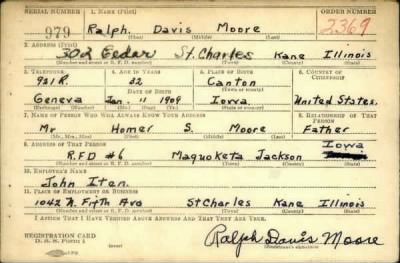 SERIAL NUMBER 1. NAME (Print) ORDER NUMBER
979 Ralph Davis Moore 2369
(First) (Middle) (Last)
2. ADDRESS (Print)
302 Cedar St. Charles Kane Illinois
(Number and street or R. F. D. number) (Town) (County) (State)
3. TELEPHONE 4. AGE IN YEARS 5. PLACE OF BIRTH 6. COUNTRY OF CITIZENSHIP
921R. Canton
DATE OF BIRTH
Geneva Jan. 11 1909 Iowa. United States.
(Exchange) (Mo.) (Day) (Yr.) (State or country)
7. NAME OF PERSON WHO WILL ALWAYS KNOW YOUR ADDRESS 8. RELATIONSHIP OF THAT PERSON
Mr Homer S. Moore Father
(Mr., Mrs., Miss) (First) (Middle) (Last)
9. ADDRESS OF THAT PERSON Iowa
R.F.D #6 Maquoketa Jackson
(Number and street or R. F. D. number) (Town) (County) (State)
10. EMPLOYER'S NAME
John Iten.
11. PLACE OF EMPLOYMENT OR BUSINESS
1042 N. Fifth Ave St Charles Kane Illinois
(Number and street or R. F. D. number) (Town) (County) (State)
I AFFIRM THAT I HAVE VERIFIED ABOVE ANSWERS AND THAT THEY ARE TRUE.
REGISTRATION CARD
D. S. S. FORM 1
Ralph Davis Moore
(Registrant's signature)